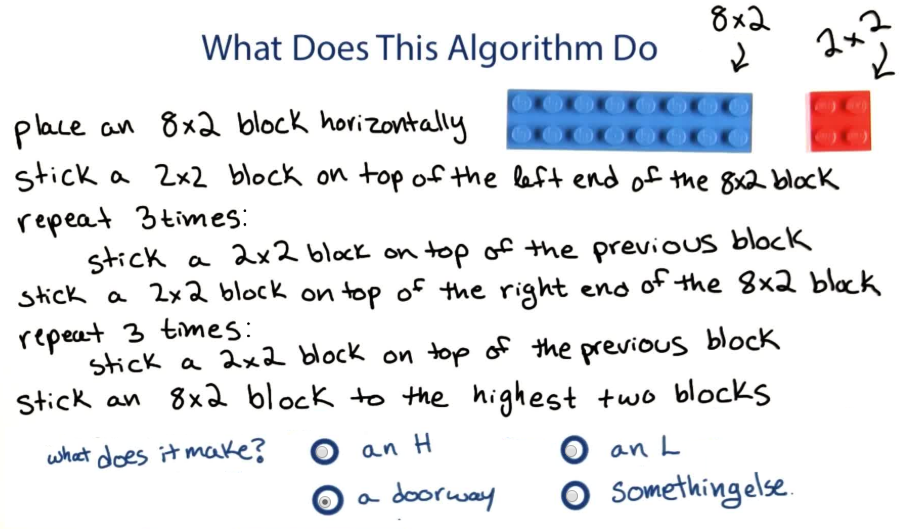 8x2
2x2
What Does This Algorithm Do
place an 8x2 block horizontally
stick a 2x2 block on top of the left end of the 8x2 block
repeat 3 times:
stick a 2x2 block on top of the previous block
stick a 2x2 block on top of the right end of the 8x2 block
repeat 3 times:
stick a 2x2 block on top of the previous block
stick an 8x2 block to the highest two blocks
what does it make?
an H
an L
a doorway
something else.